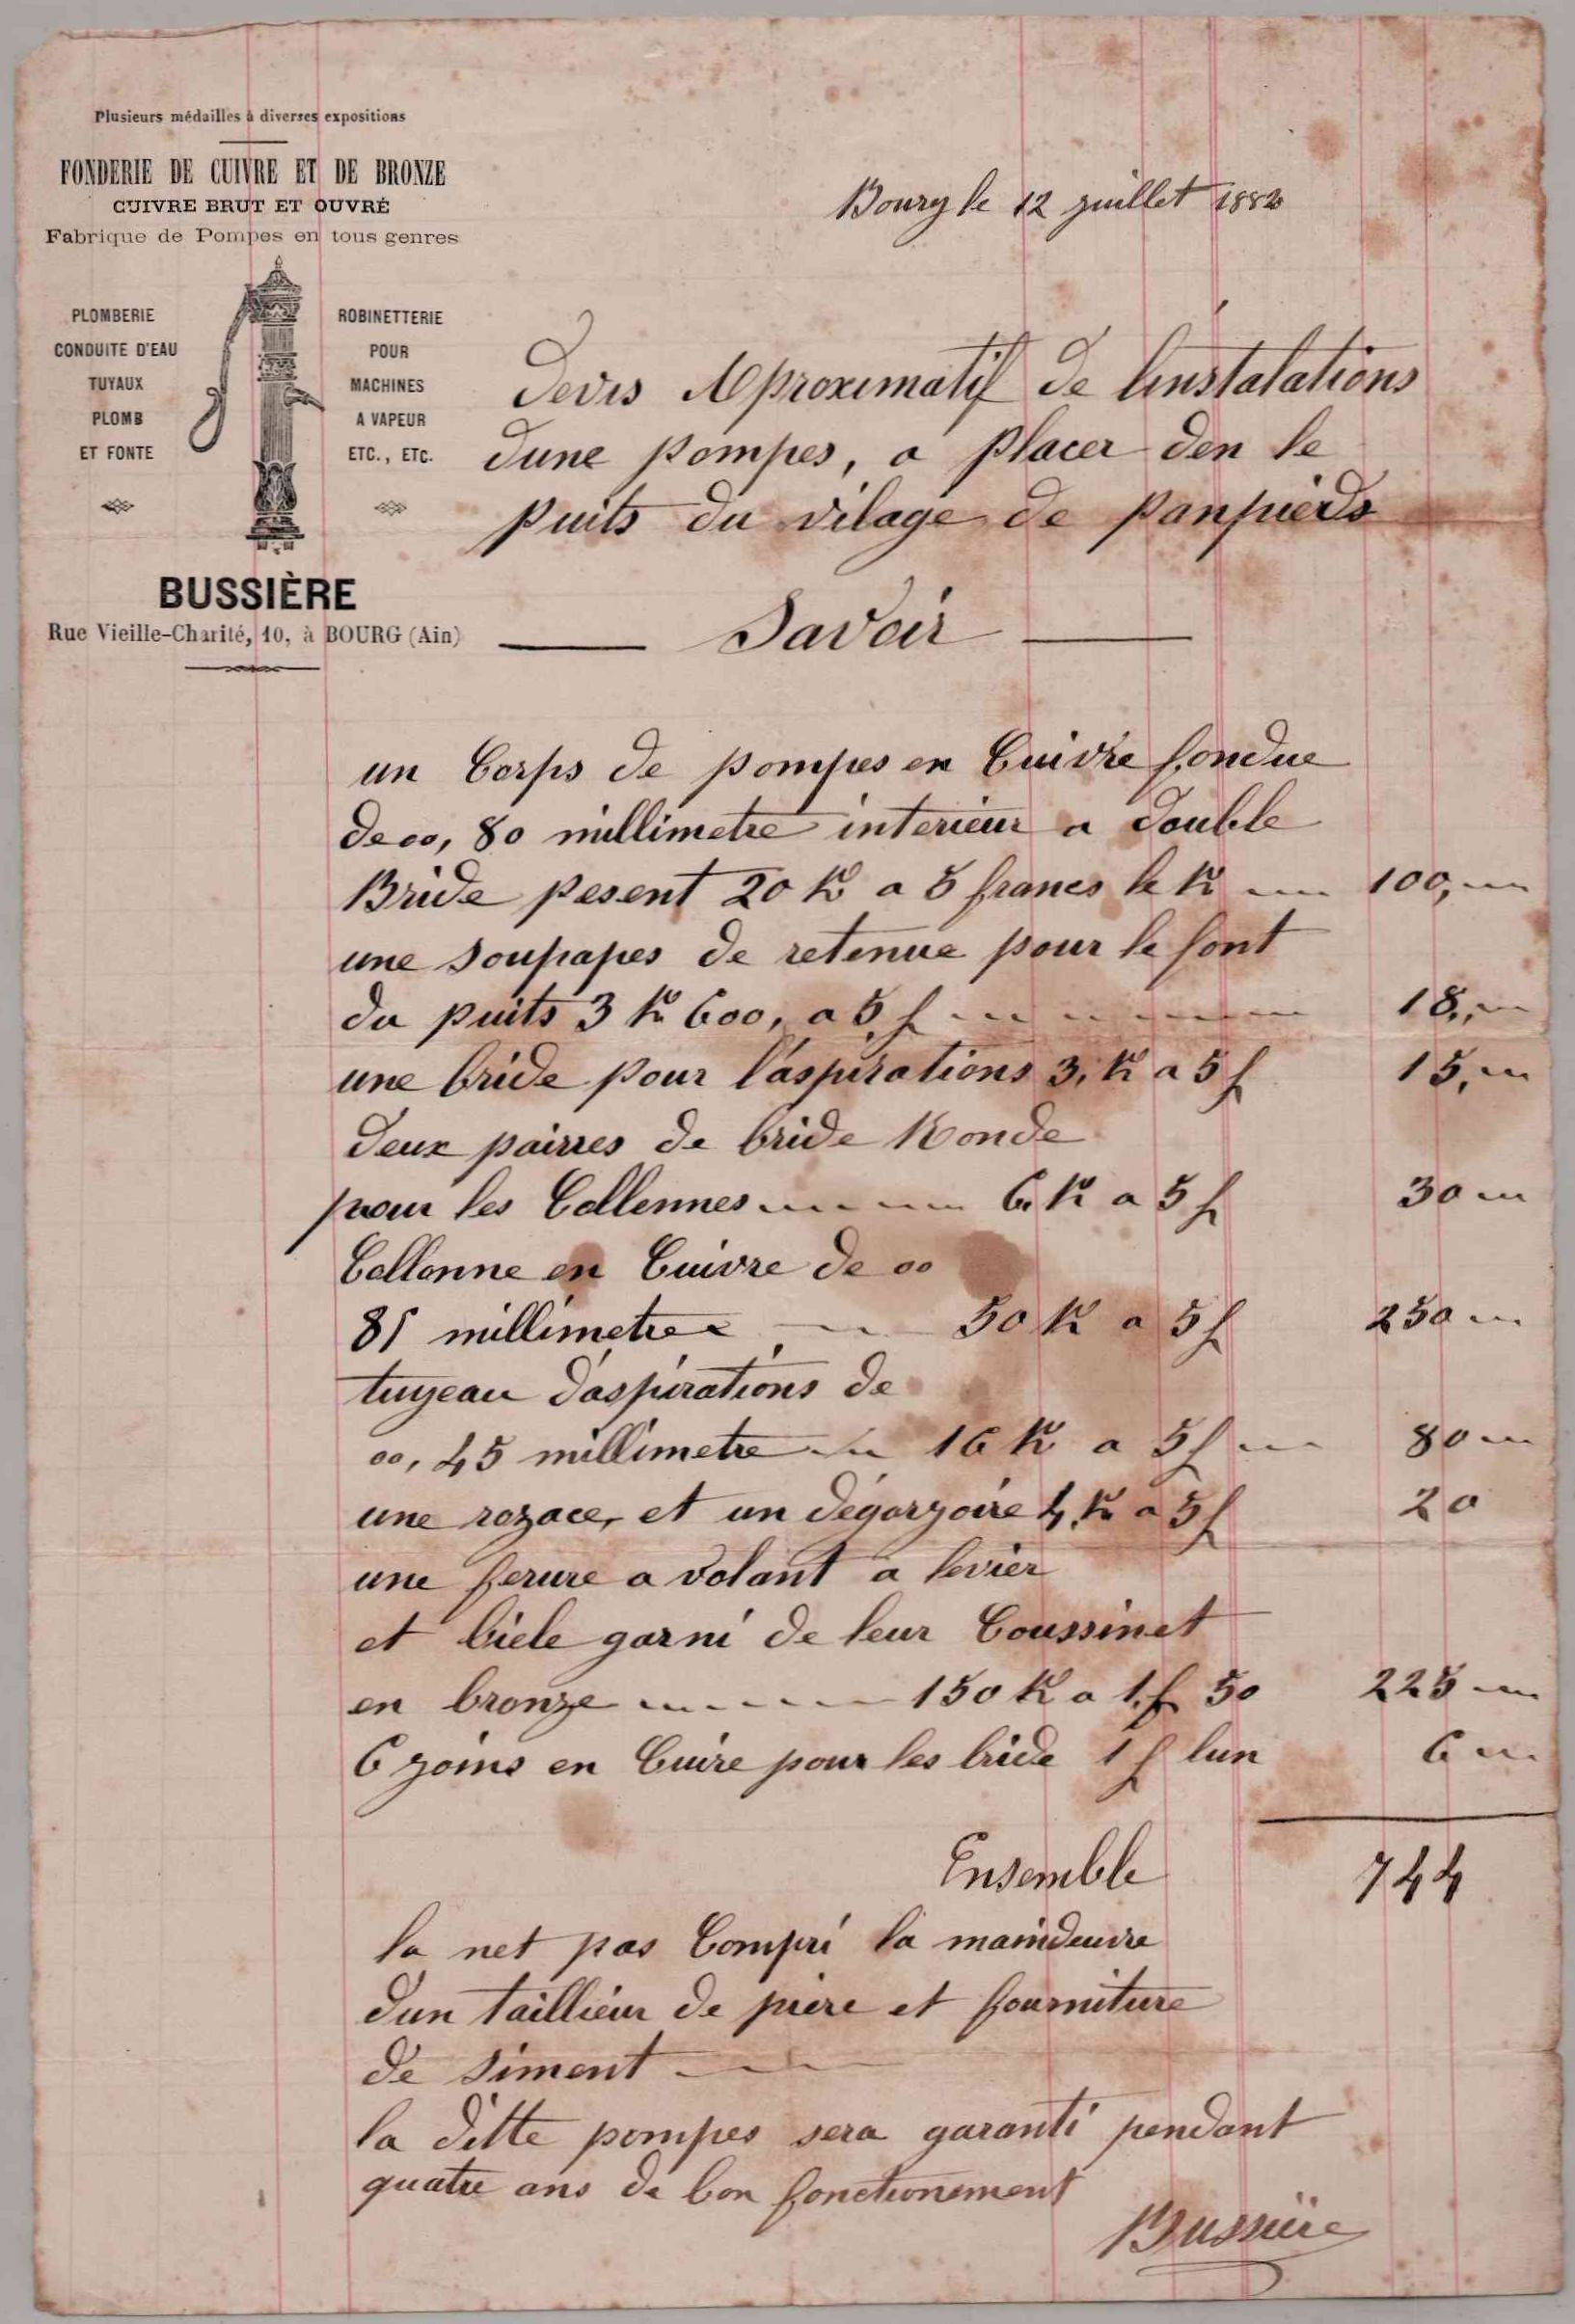 Plusieurs médailles à diverses expositions
FONDERIE DE CUIVRE ET DE BRONZE
CUIVRE BRUT ET OUVRÉ
Fabrique de Pompes en tous genres
PLOMBERIE
CONDUITE D'EAU
TUYAUX
PLOMB
ET FONTE
ROBINETTERIE
POUR
MACHINES
A VAPEUR
ETC., ETC.
BUSSIÈRE
Rue Vieille-Charité, 10, à BOURG (Ain)
Bourg le 12 juillet
Devis Aproximatif de linstalations
dune pompes, a placer den le
puits du vilage de
Savoir
un Corps de pompes en Cuivre fondue
de 00, 80 millimetre interieur a double
Bride pesent 20 K a 5 francs le K 100,
une soupapes de retenue pour le font
du puits 3 K 600, a 5 f 18,
une bride pour l'aspirations 3, K a 5 f 15,
deux pairres de bride Ronde
pour les Collennes 6 K a 5 f 30
Collonne en Cuivre de 00
85 millimetre 50 K a 5 f 250
tuyeau d'aspirations de
00, 45 millimetre 16 K a 5 f 80
une rozace, et un dégorzoire 4 K a 5 f 20
une ferure a volant a levier
et biele garni de leur Coussinet
en bronze 150 K a 1 f 50 225
6 joins en Cuire pour les bride 1 f lun 6
Ensemble 744
la net pas Compri la maindeuvre
d'un taillieur de piere et fourniture
de siment
la ditte pompes sera garanti pendant
quatre ans de bon fonctionement
Bussière